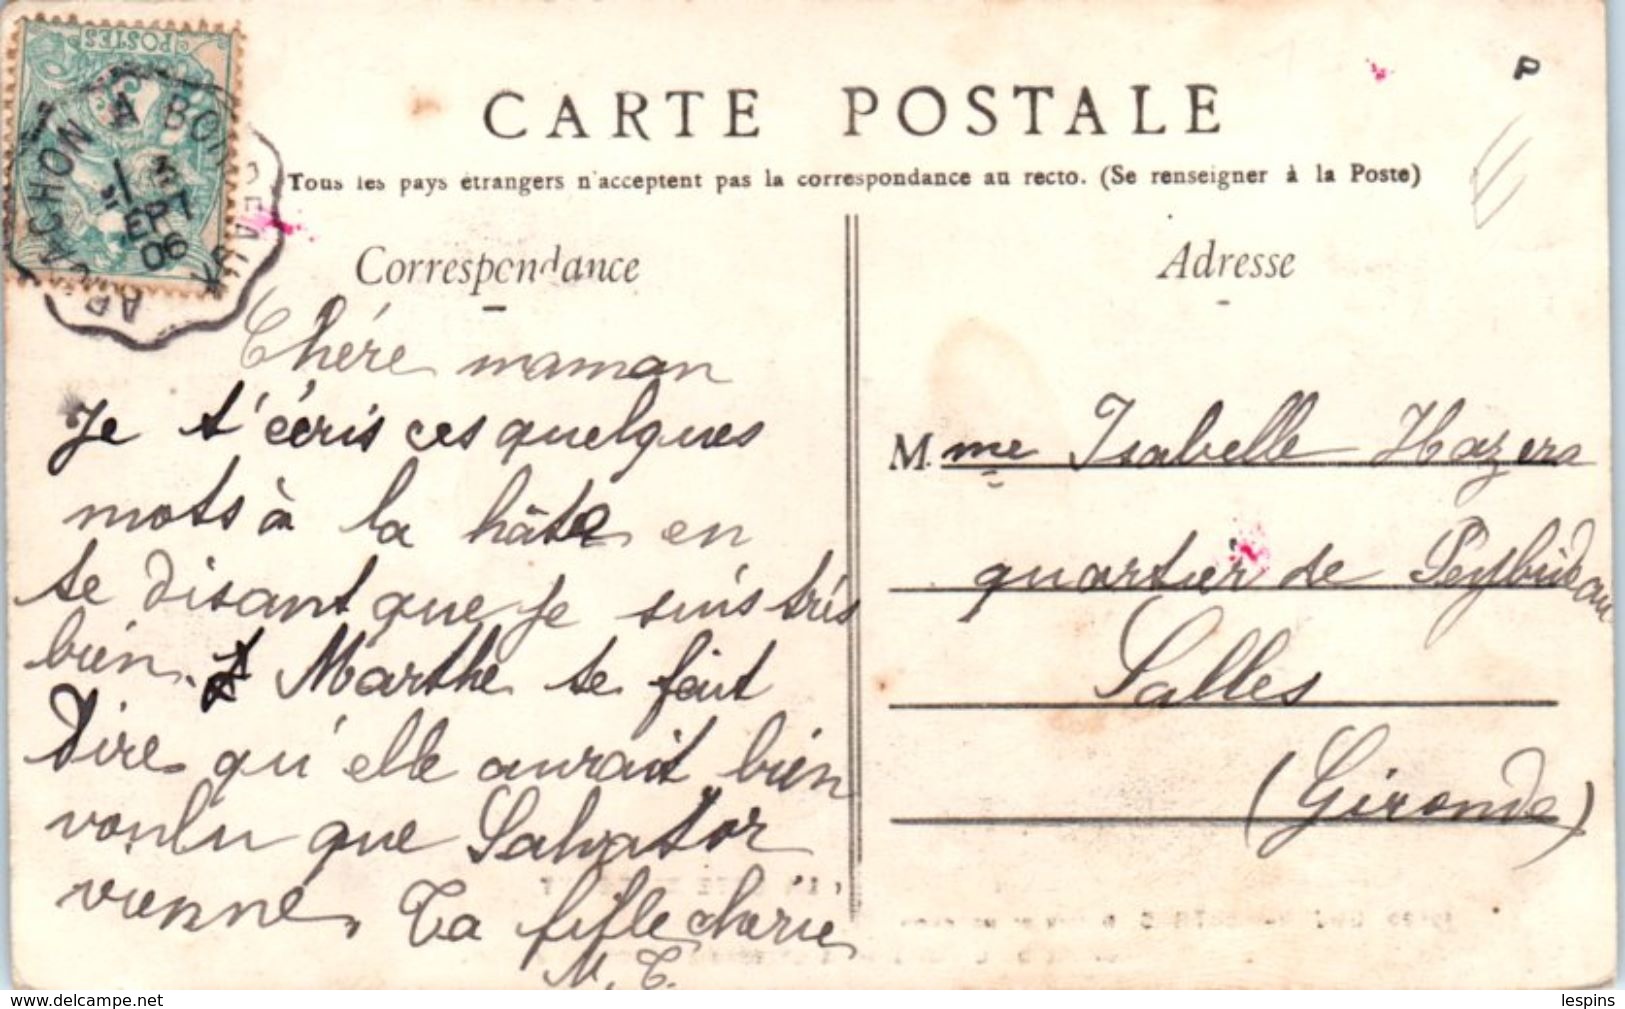 POSTES
ARCACHON A BORDEAUX
3
SEPT
06
P
CARTE POSTALE
Tous les pays étrangers n'acceptent pas la correspondance au recto. (Se renseigner à la Poste)
Correspondance
Chére maman
Je t'écris ces quelques
mots à la hâte en
te disant que je suis trés
bien. Marthe te fait
dire qu'elle aurait bien
voulu que Salvator
vienne. Ta fille cherie
Adresse
M.me Isabelle Hazera
quartier de Peybideau
Salles
(Gironde)
www.delcampe.net
lespins